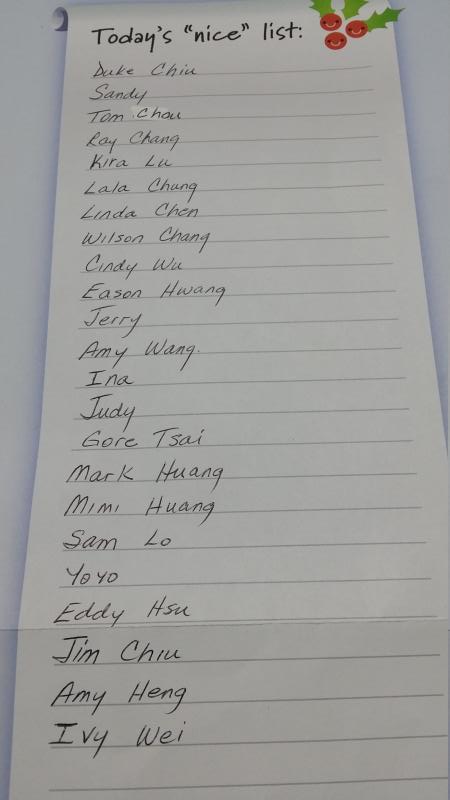 Today's "nice" list:
Duke Chiu
Sandy
Tom Chou
Ray Chang
Kira Lu
Lala Chung
Linda Chen
Wilson Chang
Cindy Wu
Eason Hwang
Jerry
Amy Wang.
Ina
Judy
Gore Tsai
Mark Huang
Mimi Huang
Sam Lo
Yoyo
Eddy Hsu
Jim Chiu
Amy Heng
Ivy Wei